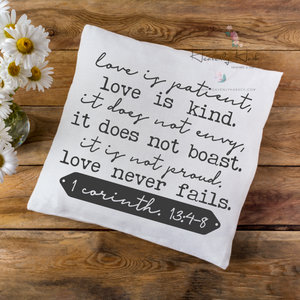 love is patient,
love is kind.
it does not envy,
it does not boast.
it is not proud.
love never fails.
1 corinth. 13:4-8